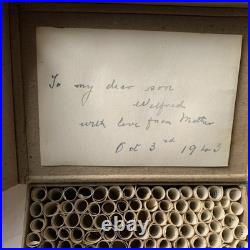 To my dear son
Wilfred
with love from Mother
Oct 3rd 1943